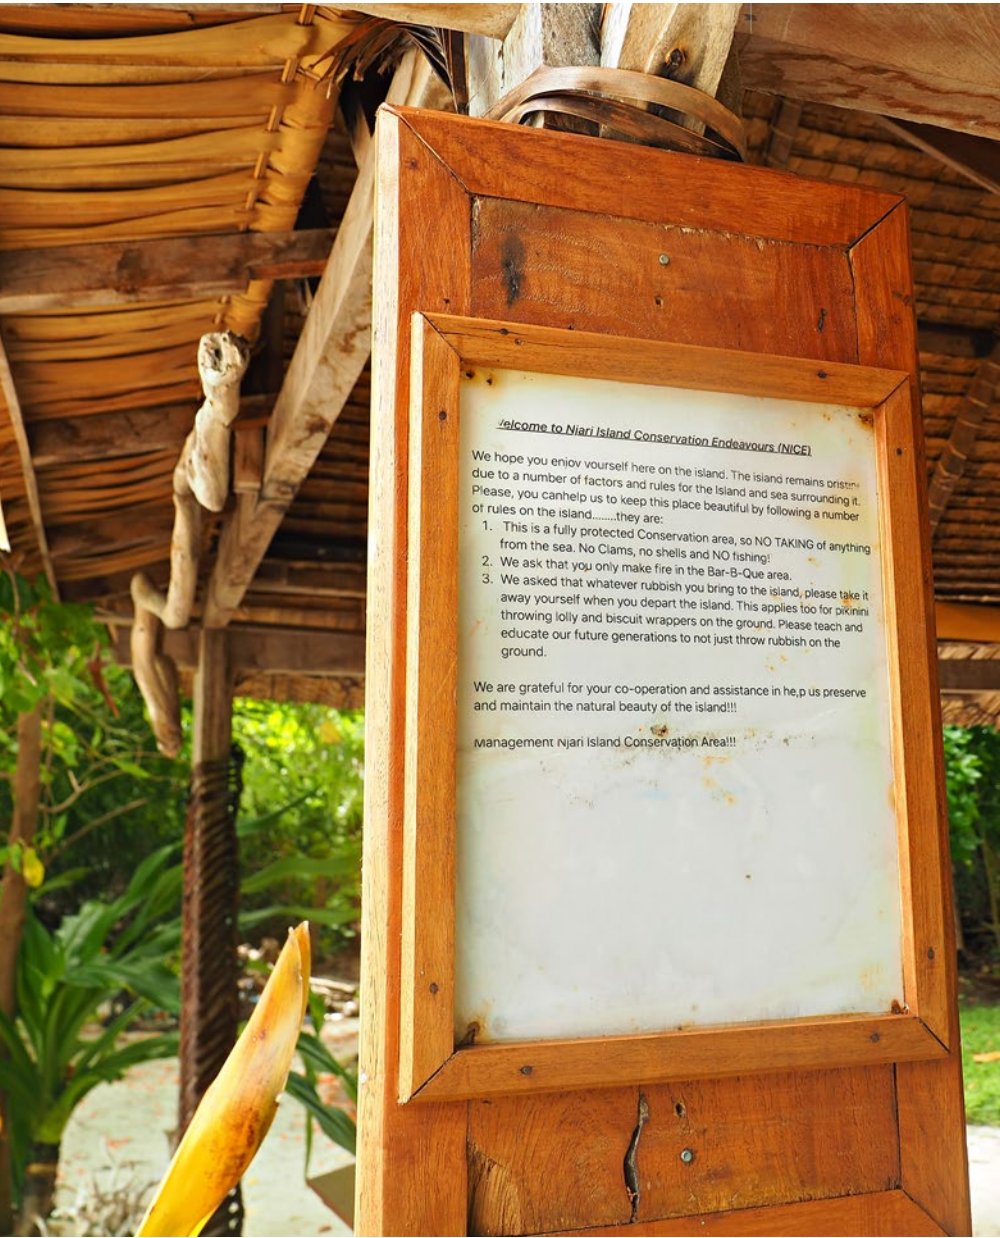 Welcome to Njari Island Conservation Endeavours (NICE)
We hope you enjoy yourself here on the island. The island remains pristine
due to a number of factors and rules for the Island and sea surrounding it.
Please, you canhelp us to keep this place beautiful by following a number
of rules on the island........they are:
1. This is a fully protected Conservation area, so NO TAKING of anything
from the sea. No Clams, no shells and NO fishing!
2. We ask that you only make fire in the Bar-B-Que area.
3. We asked that whatever rubbish you bring to the island, please take it
away yourself when you depart the island. This applies too for pikinini
throwing lolly and biscuit wrappers on the ground. Please teach and
educate our future generations to not just throw rubbish on the
ground.
We are grateful for your co-operation and assistance in he,p us preserve
and maintain the natural beauty of the island!!!
Management Njari Island Conservation Area!!!